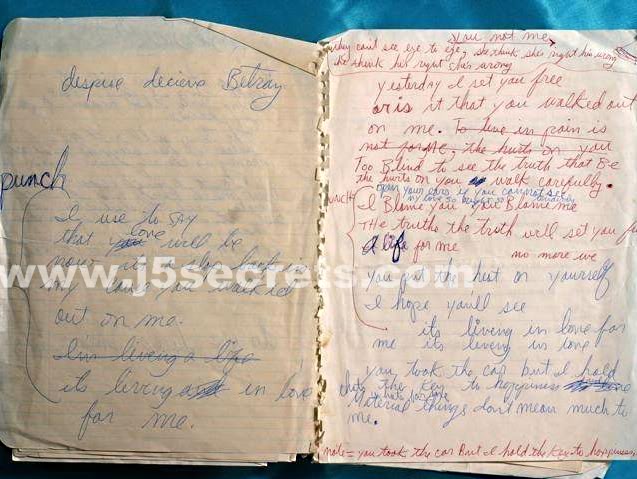 despise decieve Betray
punch
I use to say
that you love will be
now
my love you walked
out on me.
I'm living a life
its living in love
for me.
www.j5secrets.com
You not me
they can't see eye to eye, she think she's right his wrong
He think his right she's wrong
yesterday I set you free
or is it that you walked out
on me. To live in pain is
not for me, the hurts on you
Too Blind to see the truth that Be
the hurts on you walk carefully.
open your ears if you cannot see
my love so
I Blame you you Blame me
THe truths the truth will set you
life for me no more we
You put the hurt on yourself
I hope you'll see
its living in love for
me its living in love
you took the car but I hold
thats the key to happiness
thats for love
Material things don't mean much to
me.
note = you took the car But I hold the key to happiness